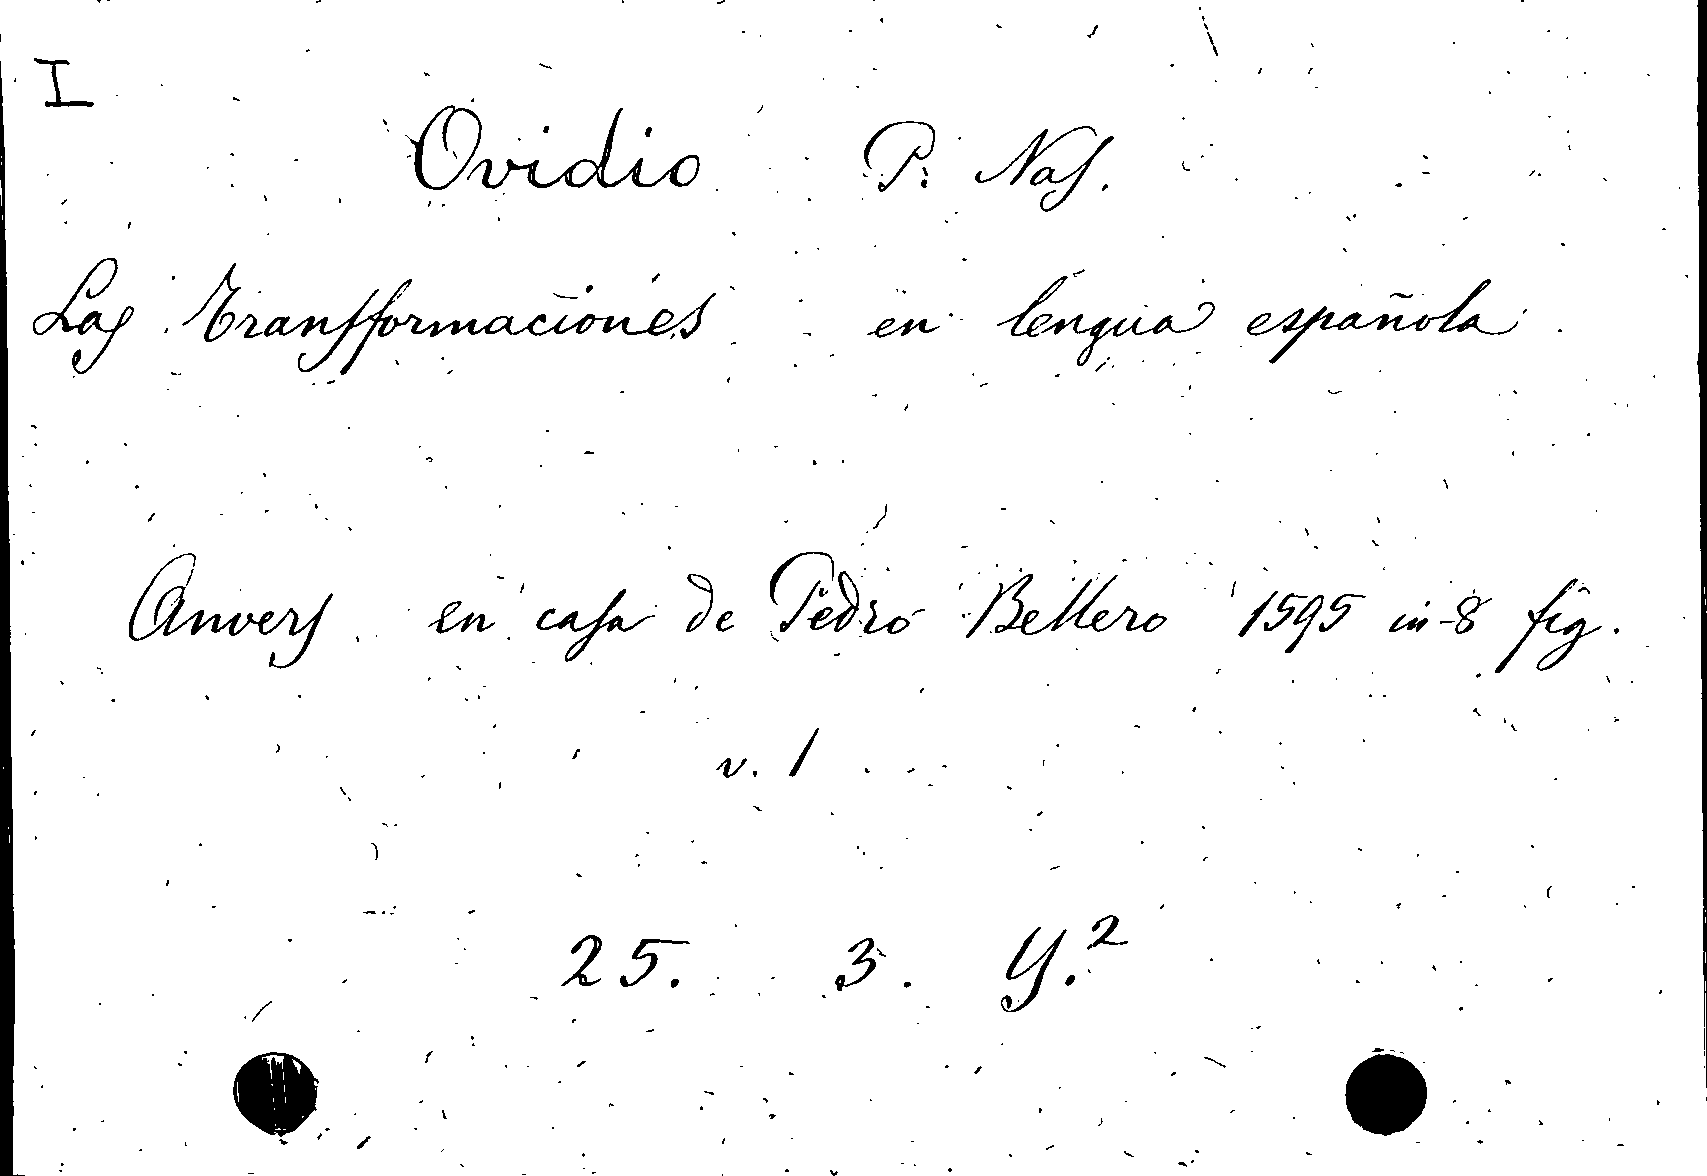 I
Ovidio P. Naſ.
Laſ Tranſformaciones en lengua española
Anverſ en caſa de Pedro Bellero 1595 in-8 fig.
v. 1
25. 3. Y.²